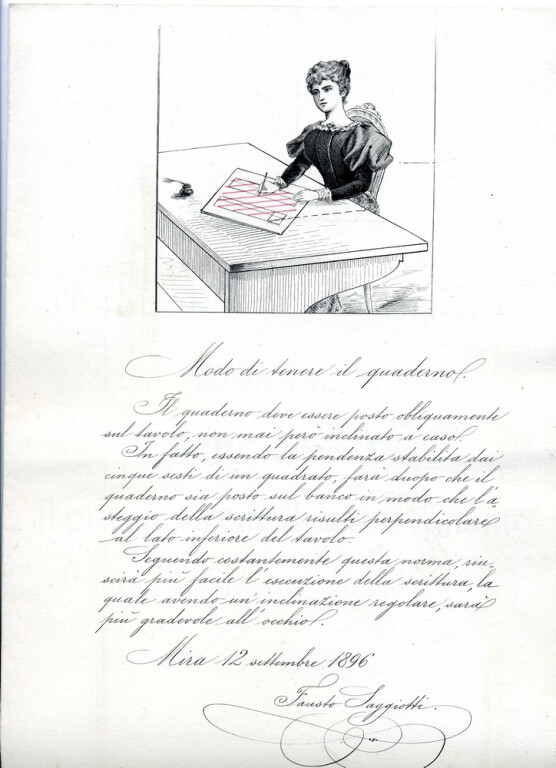 Modo di tenere il quaderno.
Il quaderno deve essere posto obliquamente
sul tavolo, non mai però inclinato a caso.
In fatto, essendo la pendenza stabilita dai
cinque sesti di un quadrato, farà duopo che il
quaderno sia posto sul banco in modo che l'a-
steggio della scrittura risulti perpendicolare
al lato inferiore del tavolo.
Seguendo costantemente questa norma, riu-
scirà più facile l'esecuzione della scrittura, la
quale avendo un'inclinazione regolare, sarà
più gradevole all'occhio.
Mira 12 settembre 1896
Fausto Saggiotti.